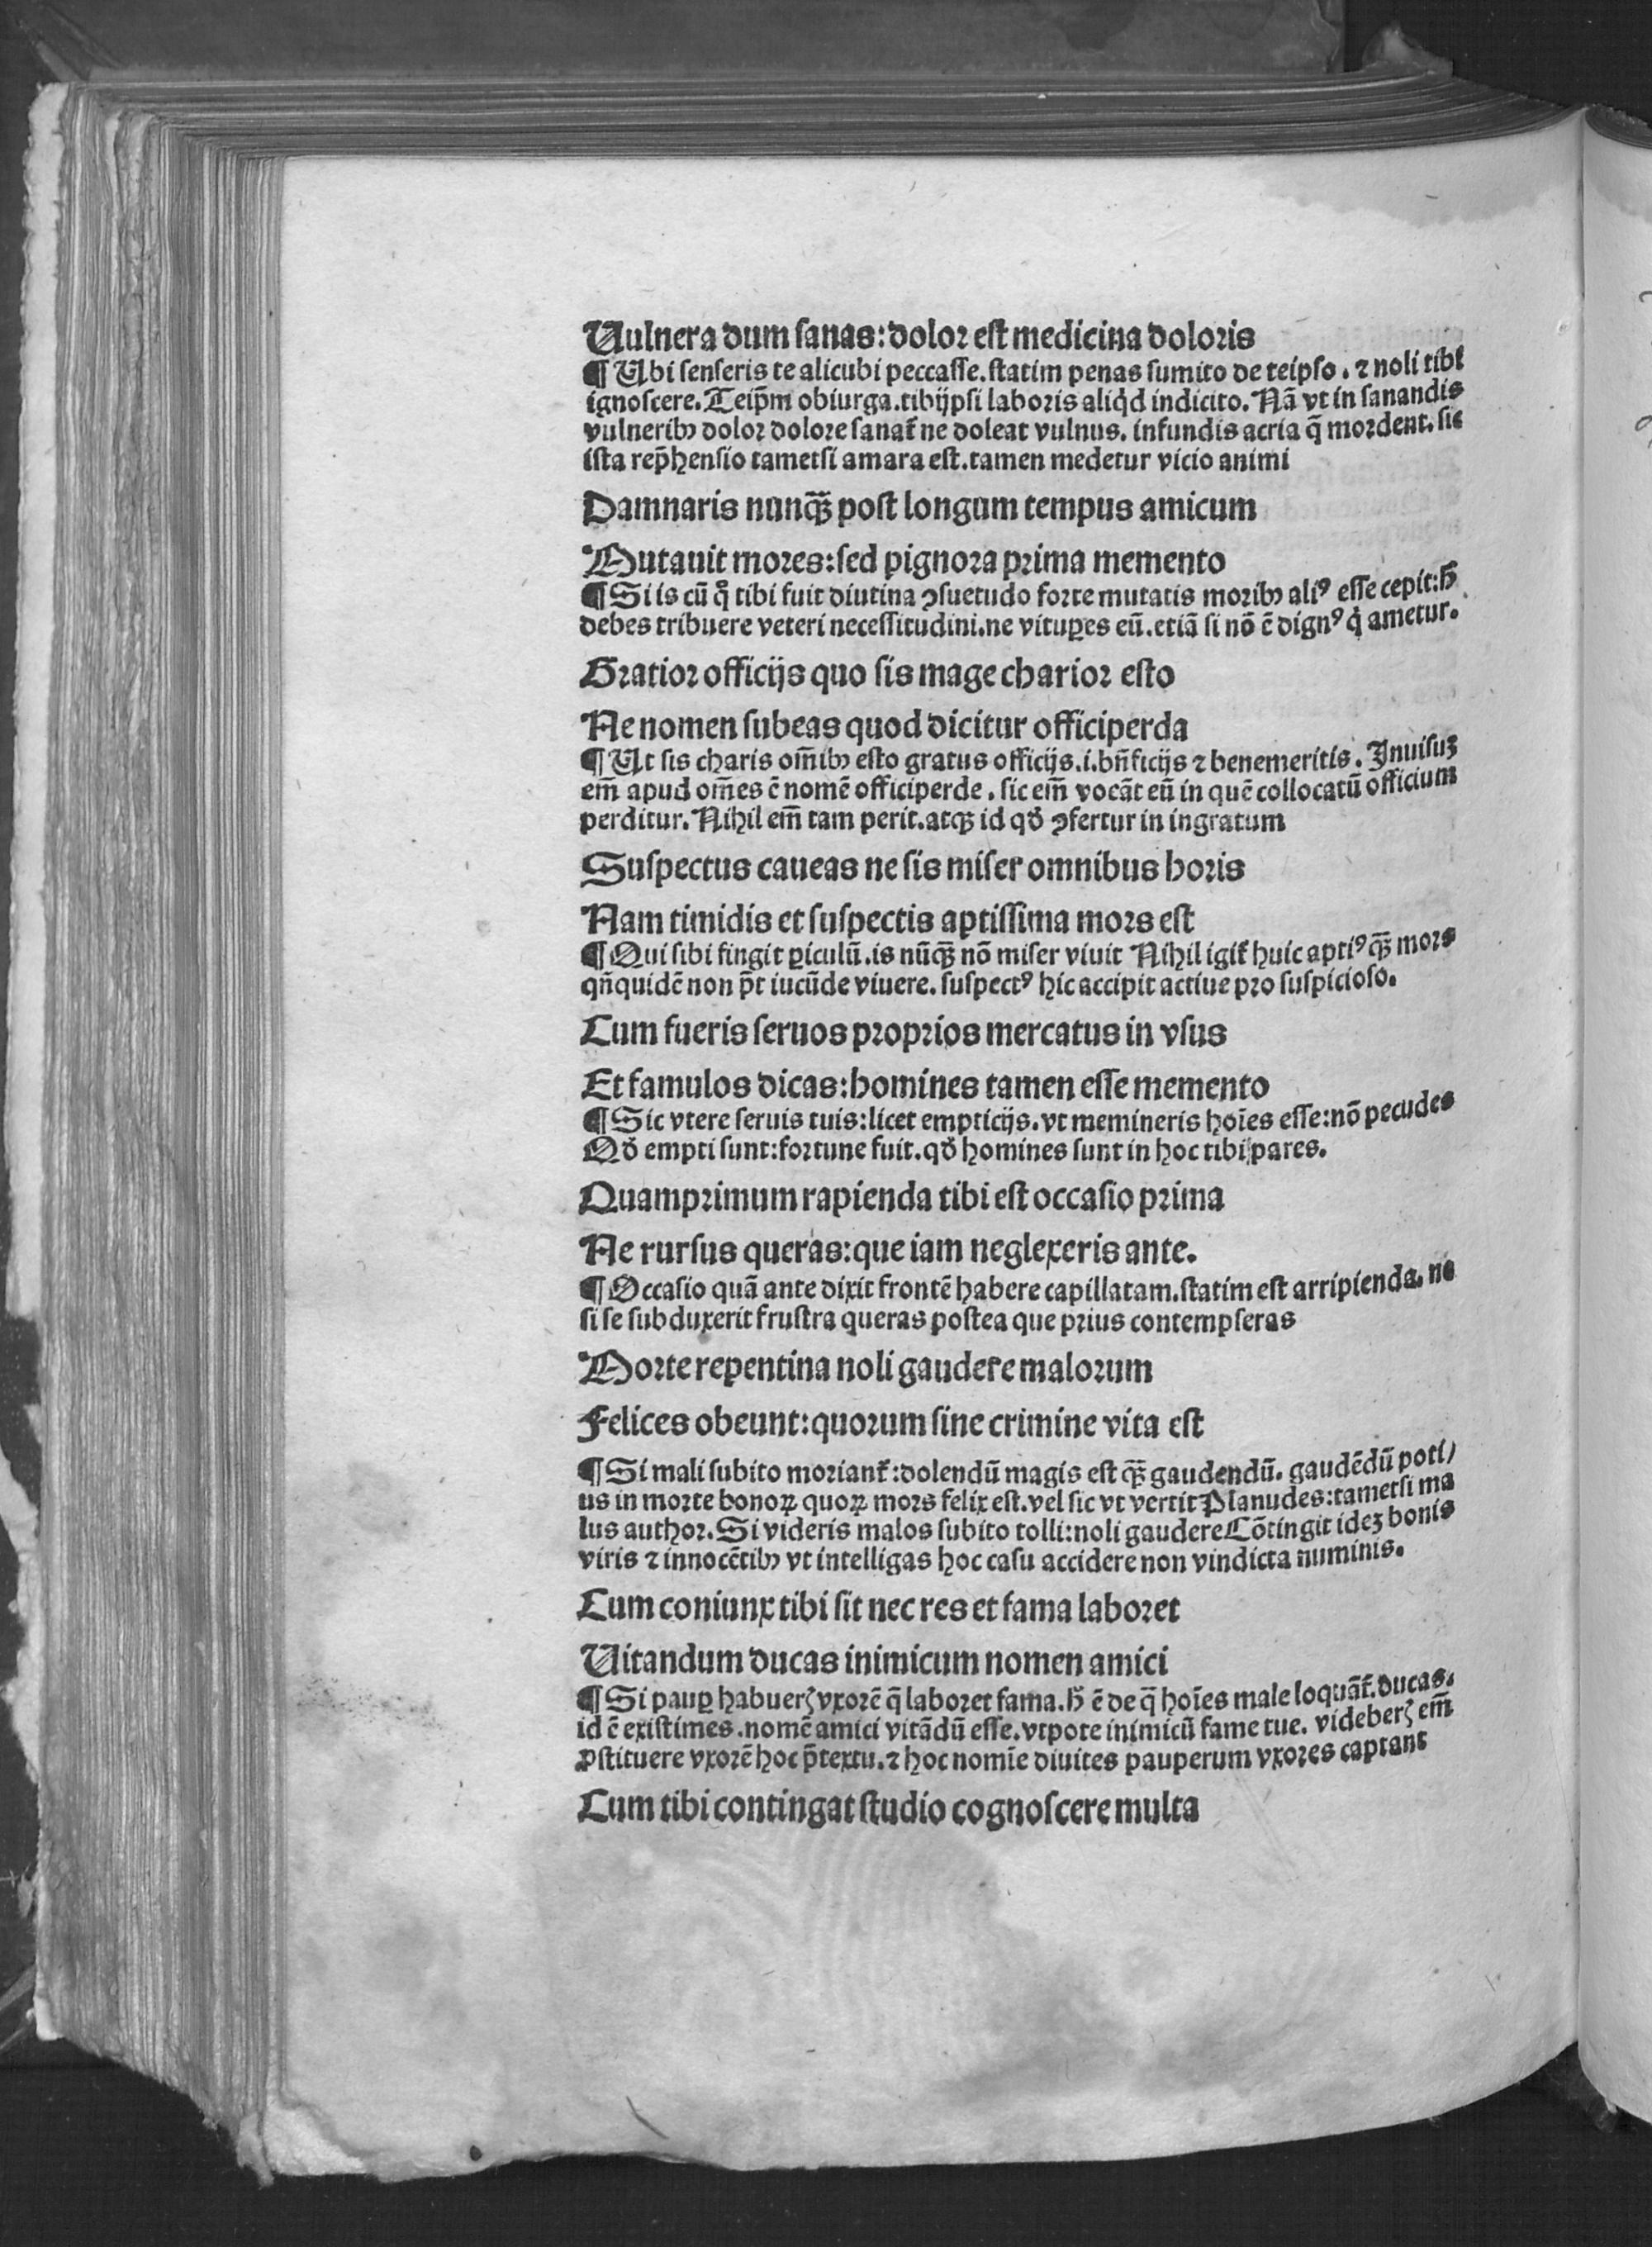 Uulnera dum sanas: dolor est medicina doloris
¶ Ubi senseris te alicubi peccasse. statim penas sumito de teipso. ⁊ noli tibi
ignoscere. Teip̄m obiurga. tibijpsi laboris aliq̇d indicito. Nā vt in sanandis
vulneribꝰ dolor dolore sanat᷑ ne doleat vulnus. infundis acria q̄ mordent. sic
ista rep̄hensio tametsi amara est. tamen medetur vicio animi
Damnaris nunqꝫ̄ post longum tempus amicum
Mutauit mores: sed pignora prima memento
¶ Si is cū q̊ tibi fuit diutina ꝯsuetudo forte mutatis moribꝰ aliꝰ esse cepit: h̄
debes tribuere veteri necessitudini. ne vituꝑes eū. etiā si nō ē dignꝰ q̇ ametur.
Gratior officijs quo sis mage charior esto
Ne nomen subeas quod dicitur officiperda
¶ Ut sis charis om̄ibꝰ esto gratus officijs. i. bn̄ficijs ⁊ benemeritis. Inuisuꝫ
em̄ apud om̄es ē nomē officiperde. sic em̄ vocāt eū in quē collocatū officium
perditur. Nihil em̄ tam perit. atqꝫ id qđ ꝯfertur in ingratum
Suspectus caueas ne sis miser omnibus horis
Nam timidis et suspectis aptissima mors est
¶ Qui sibi fingit ꝑiculū. is nūqꝫ̄ nō miser viuit Nihil igit᷑ huic aptiꝰ qꝫ̄ mors
qn̄quidē non p̄t iucūde viuere. suspectꝰ hic accipit actiue pro suspicioso.
Cum fueris seruos proprios mercatus in vsus
Et famulos dicas: homines tamen esse memento
¶ Sic vtere seruis tuis: licet empticijs. vt memineris hoīes esse: nō pecudes
Qđ empti sunt: fortune fuit. qđ homines sunt in hoc tibi pares.
Quamprimum rapienda tibi est occasio prima
Ne rursus queras: que iam neglexeris ante.
¶ Occasio quā ante dixit frontē habere capillatam. statim est arripienda. ne
si se subduxerit frustra queras postea que prius contempseras
Morte repentina noli gaudere malorum
Felices obeunt: quorum sine crimine vita est
¶ Si mali subito moriant᷑: dolendū magis est qꝫ̄ gaudendū. gaudēdū poti/
us in morte bonoꝝ quoꝝ mors felix est. vel sic vt vertit Planudes: tametsi ma
lus author. Si videris malos subito tolli: noli gaudere Cōtingit ideꝫ bonis
viris ⁊ innocētibꝰ vt intelligas hoc casu accidere non vindicta numinis.
Cum coniunx tibi sit nec res et fama laboret
Uitandum ducas inimicum nomen amici
¶ Si pauꝑ habuerꝭ vxorē q̄ laboret fama. h̄ ē de q̄ hoīes male loquāt᷑. ducas.
id ē existimes. nomē amici vitādū esse. vtpote inimicū fame tue. videberꝭ em̄
ꝓstituere vxorē hoc p̄textu. ⁊ hoc nomīe diuites pauperum vxores captant
Cum tibi contingat studio cognoscere multa